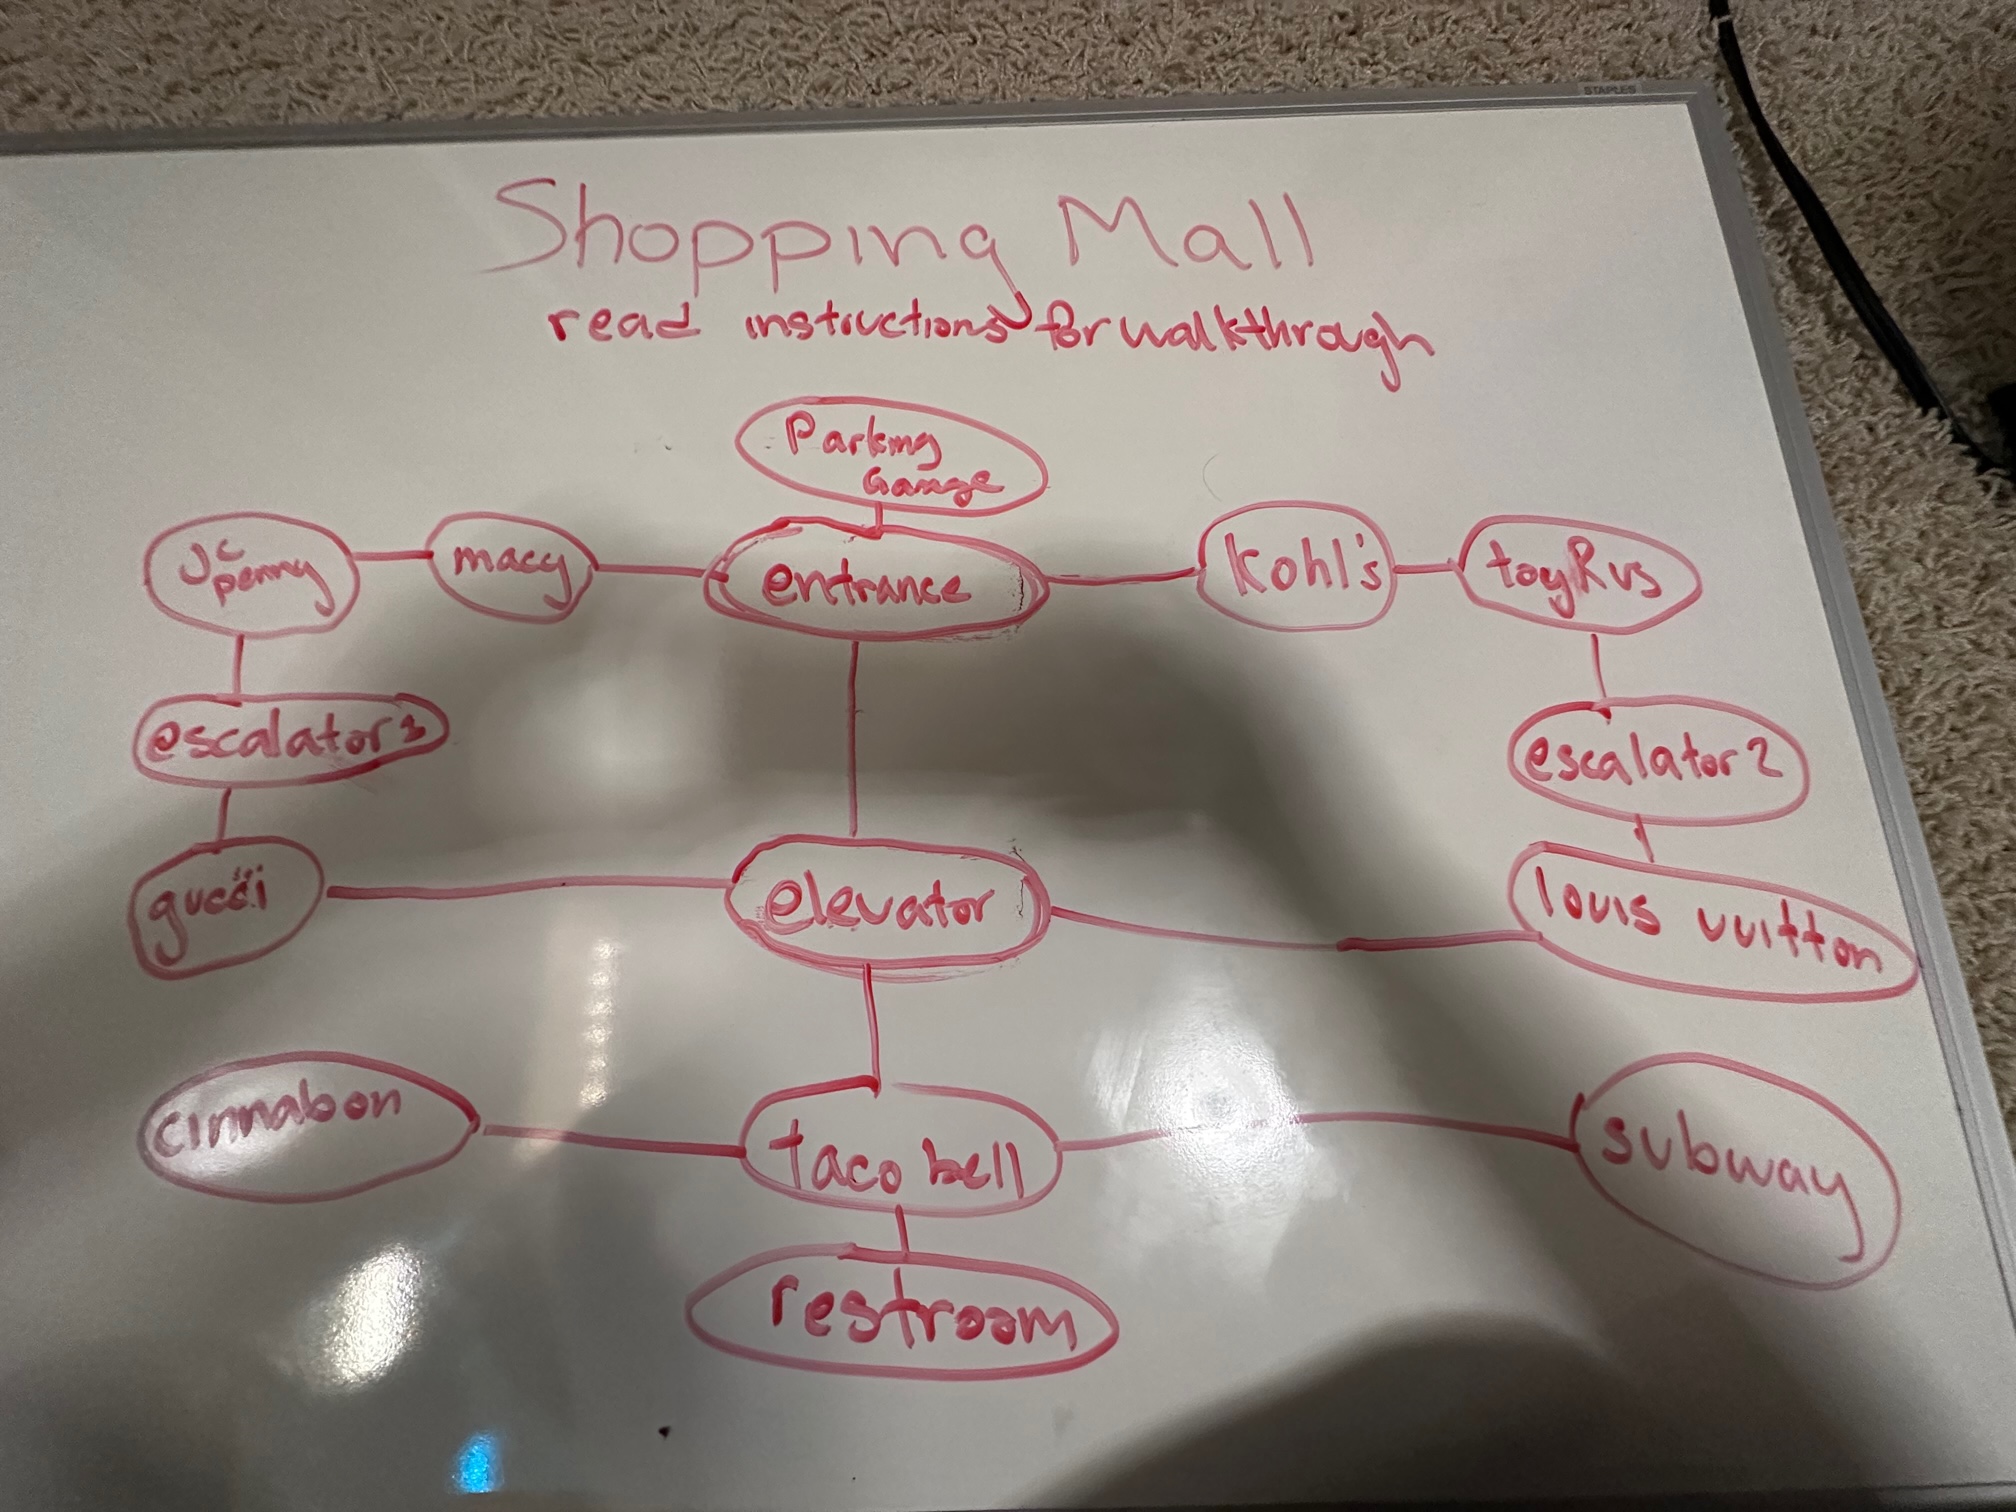 Shopping Mall
read instructions for walkthrough
Parking
Garage
Jc
penny
macy
entrance
Kohl's
toyRus
escalator
escalator 2
gucci
elevator
louis vuitton
cinnabon
taco bell
subway
restroom